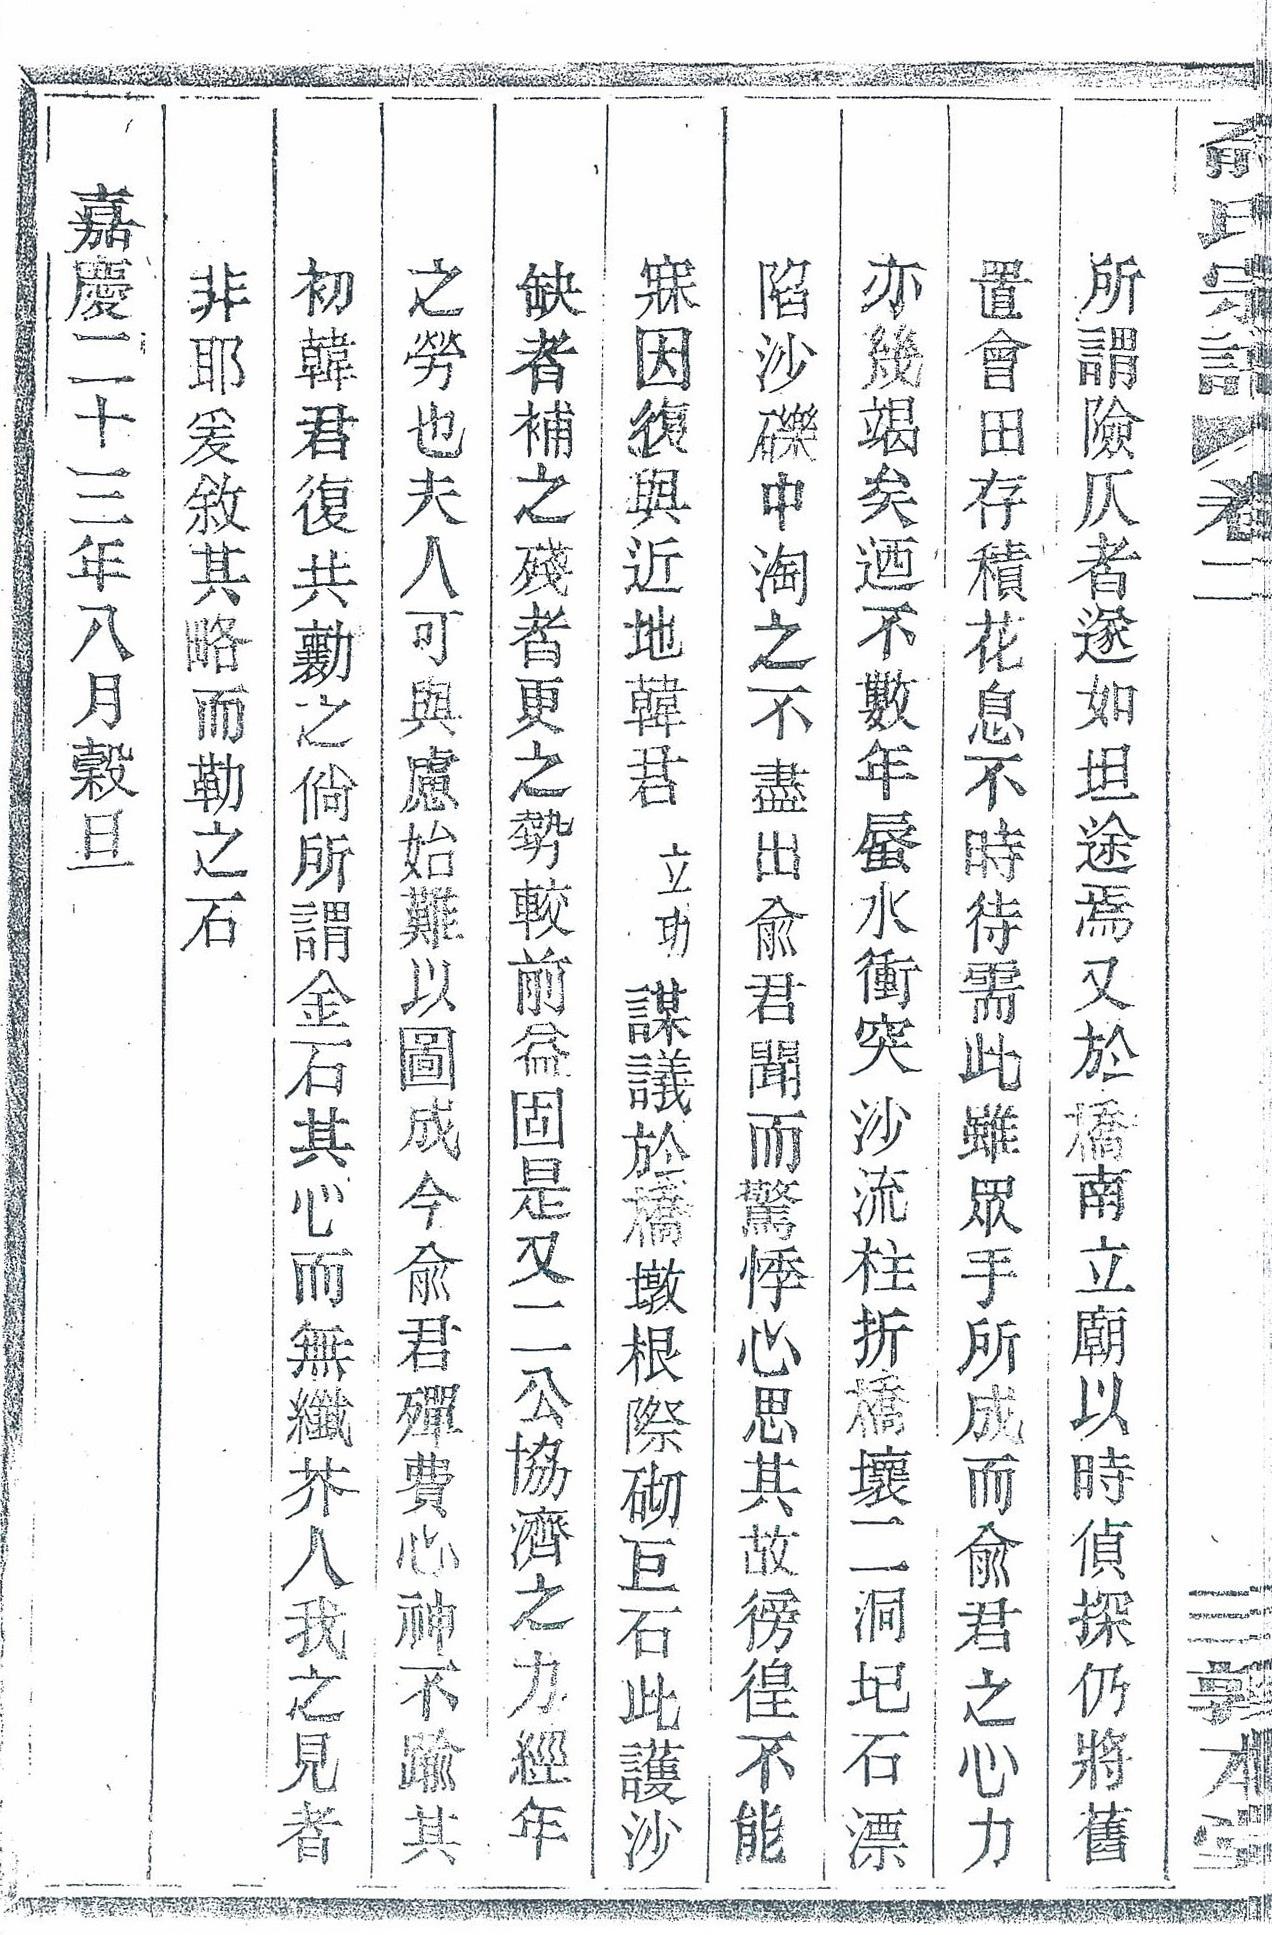 俞氏宗譜 卷二 三 敦本堂
所謂險仄者遂如坦途焉又於橋南立廟以時偵探仍將舊
置會田存積花息不時待需此雖眾手所成而俞君之心力
亦幾竭矣迺不數年蜃水衝突沙流柱折橋壞二洞圮石漂
陷沙礫中淘之不盡出俞君聞而驚悸心思其故徬徨不能
寐因復與近地韓君立功謀議於橋墩根際砌巨石此護沙
缺者補之殘者更之勢較前益固是又二公協濟之力經年
之勞也夫人可與慮始難以圖成今俞君殫費心神不踰其
初韓君復共勷之倘所謂金石其心而無纖芥人我之見者
非耶爰敘其略而勒之石
嘉慶二十三年八月穀旦